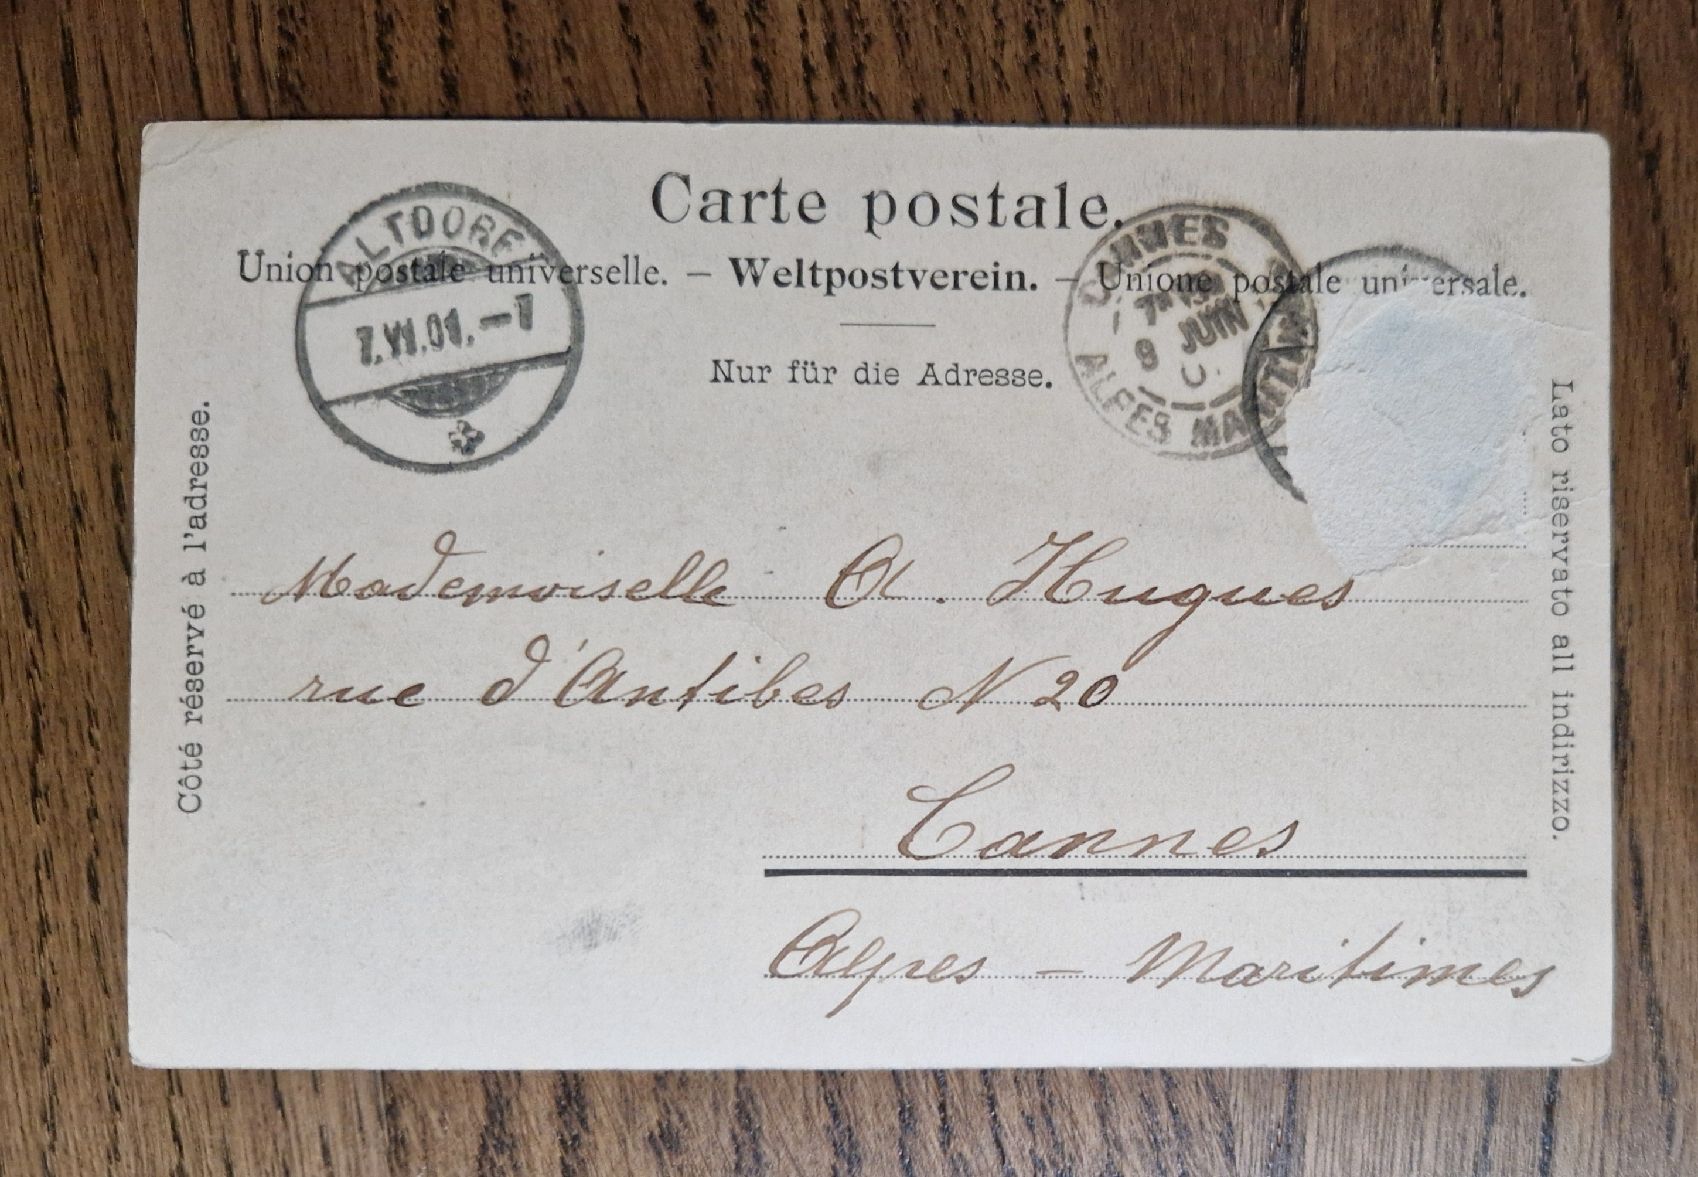 Carte postale.
Union postale universelle. – Weltpostverein. – Unione postale universale.
Nur für die Adresse.
ALTDORF
7.VI.01.–7
CANNES
7
8 JUIN
ALPES MARITIMES
Côté réservé à l'adresse.
Lato riservato all indirizzo.
Mademoiselle A. Hugues
rue d'Antibes N 20
Cannes
Alpes – Maritimes